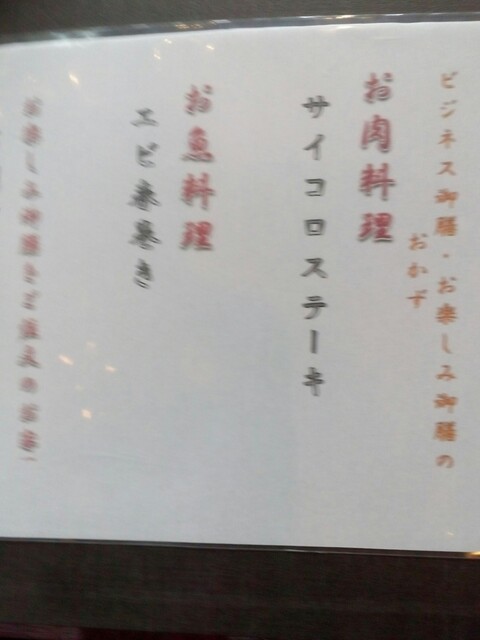 ビジネス御膳・お楽しみ御膳の
おかず
お肉料理
サイコロステーキ
お魚料理
エビ春巻き
お楽しみ御膳をご注文のお客